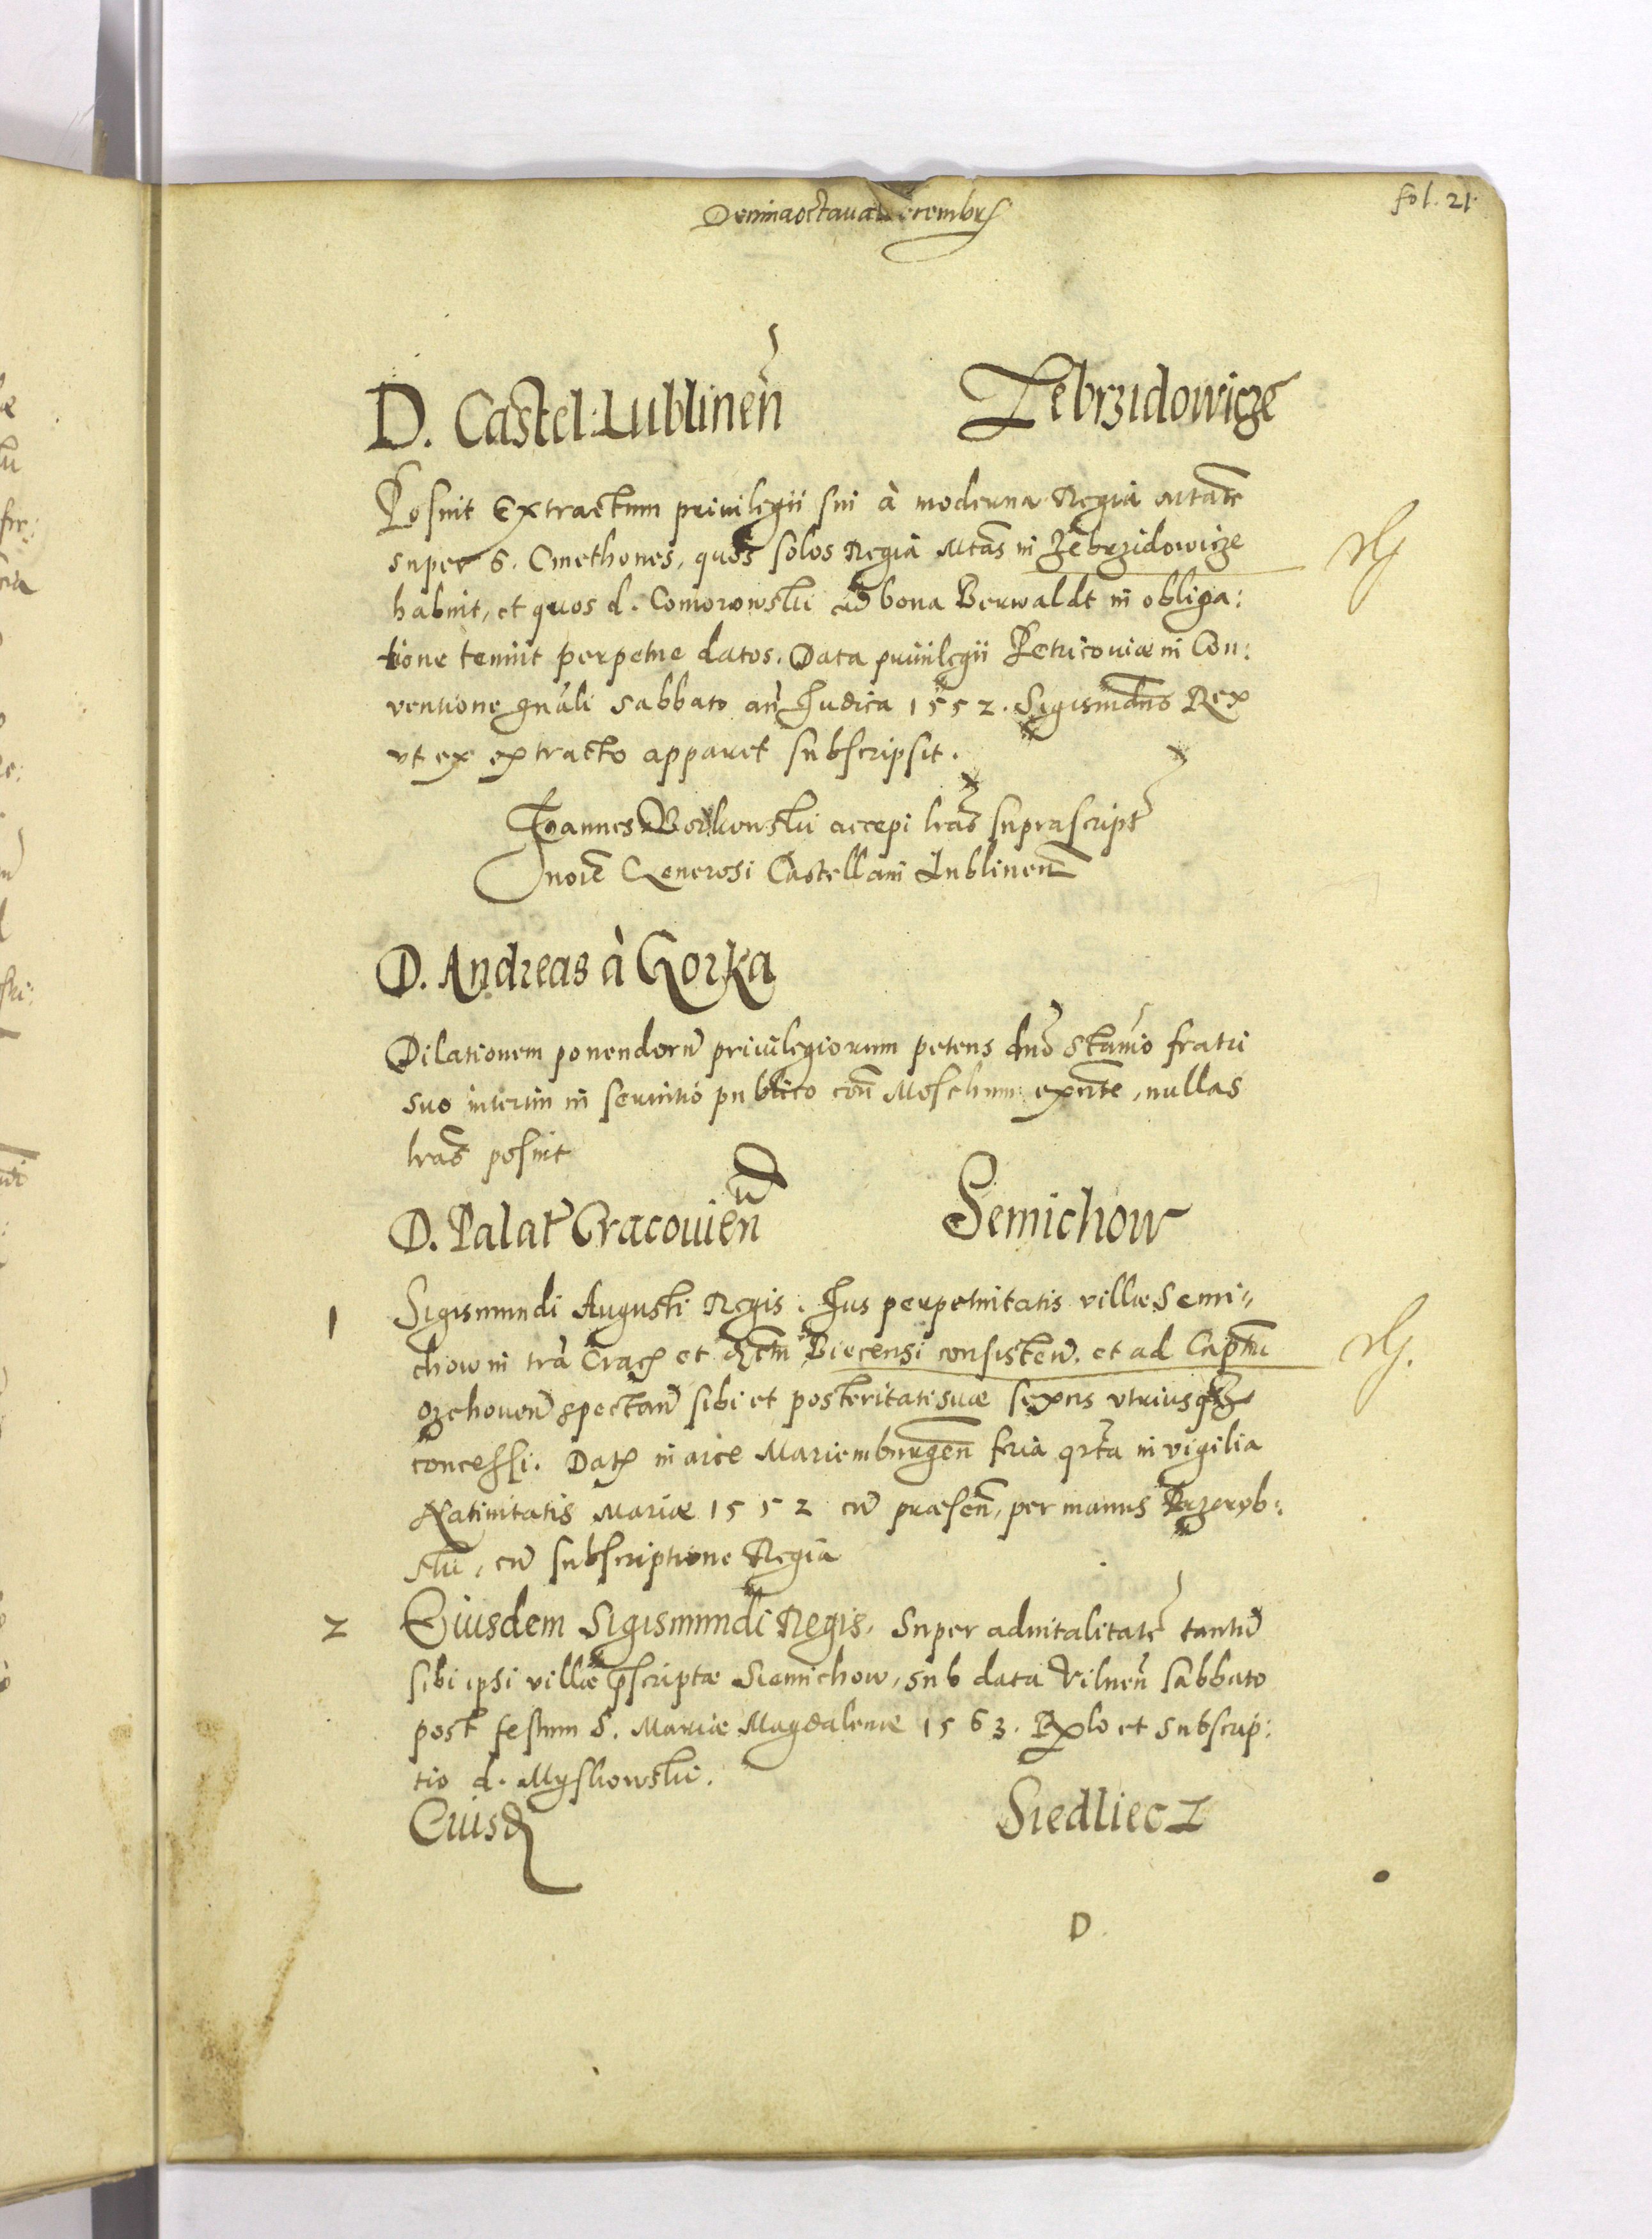 fol. 21.
Decimaoctaua Decembrs
D. Castel: Lublinen̄ Zebrzidowicze
Posuit Extractum priuilegii sui à moderna Regia Mtate
super 6. Cmethones, quos solos Regia Mtas in Zebrzidowicze
habuit, et quos d. Comorowski ad bona Berwaldt in obliga:
tione tenuit perpetue datos. Data priuilegii Petricouiæ in Con:
ventione gnāli Sabbato an̄ Judica 1552. Sigismdūs Rex
vt ex extracto apparet subscripsit.
Joannes Borkowski accepi lr̄as suprascript
noīe Generosi Castellani Lublinen̄
D. Andreas à Gorka
Dilationem ponendorū priuilegiorum petens dn̄o Stanīo fratri
suo interim in seruitio publico con̄ Moschum exn̄te, nullas
lr̄as posuit
D. Palat̄ Cracouien̄ Semichow
1 Sigismundi Augusti Regis. Jus perpetuitatis villæ Semi„
chow in trā Crac̄ et Distr̄ Biecensi consisten̄. et ad Captm̄
ozchouen̄ spectan̄ sibi et posteritati suæ sexus vtriusq
concessi. Dat̄ in arce Mariemburgen̄ feria qr̄ta in vigilia
Natiuitatis Mariæ 1552 cū præsen̄, per manus Przeręb:
ski, cū subscriptione Regia
2 Eiusdem Sigismundi Regis, Super aduitalitatē tantū
sibi ipsi villæ pscriptæ Siemichow, sub data Vilnen̄ Sabbato
post festum S. Mariæ Magdalenæ 1563. Rlo et Subscrip:
tio d. Myskowski.
Eiusd Siedliecz
D.